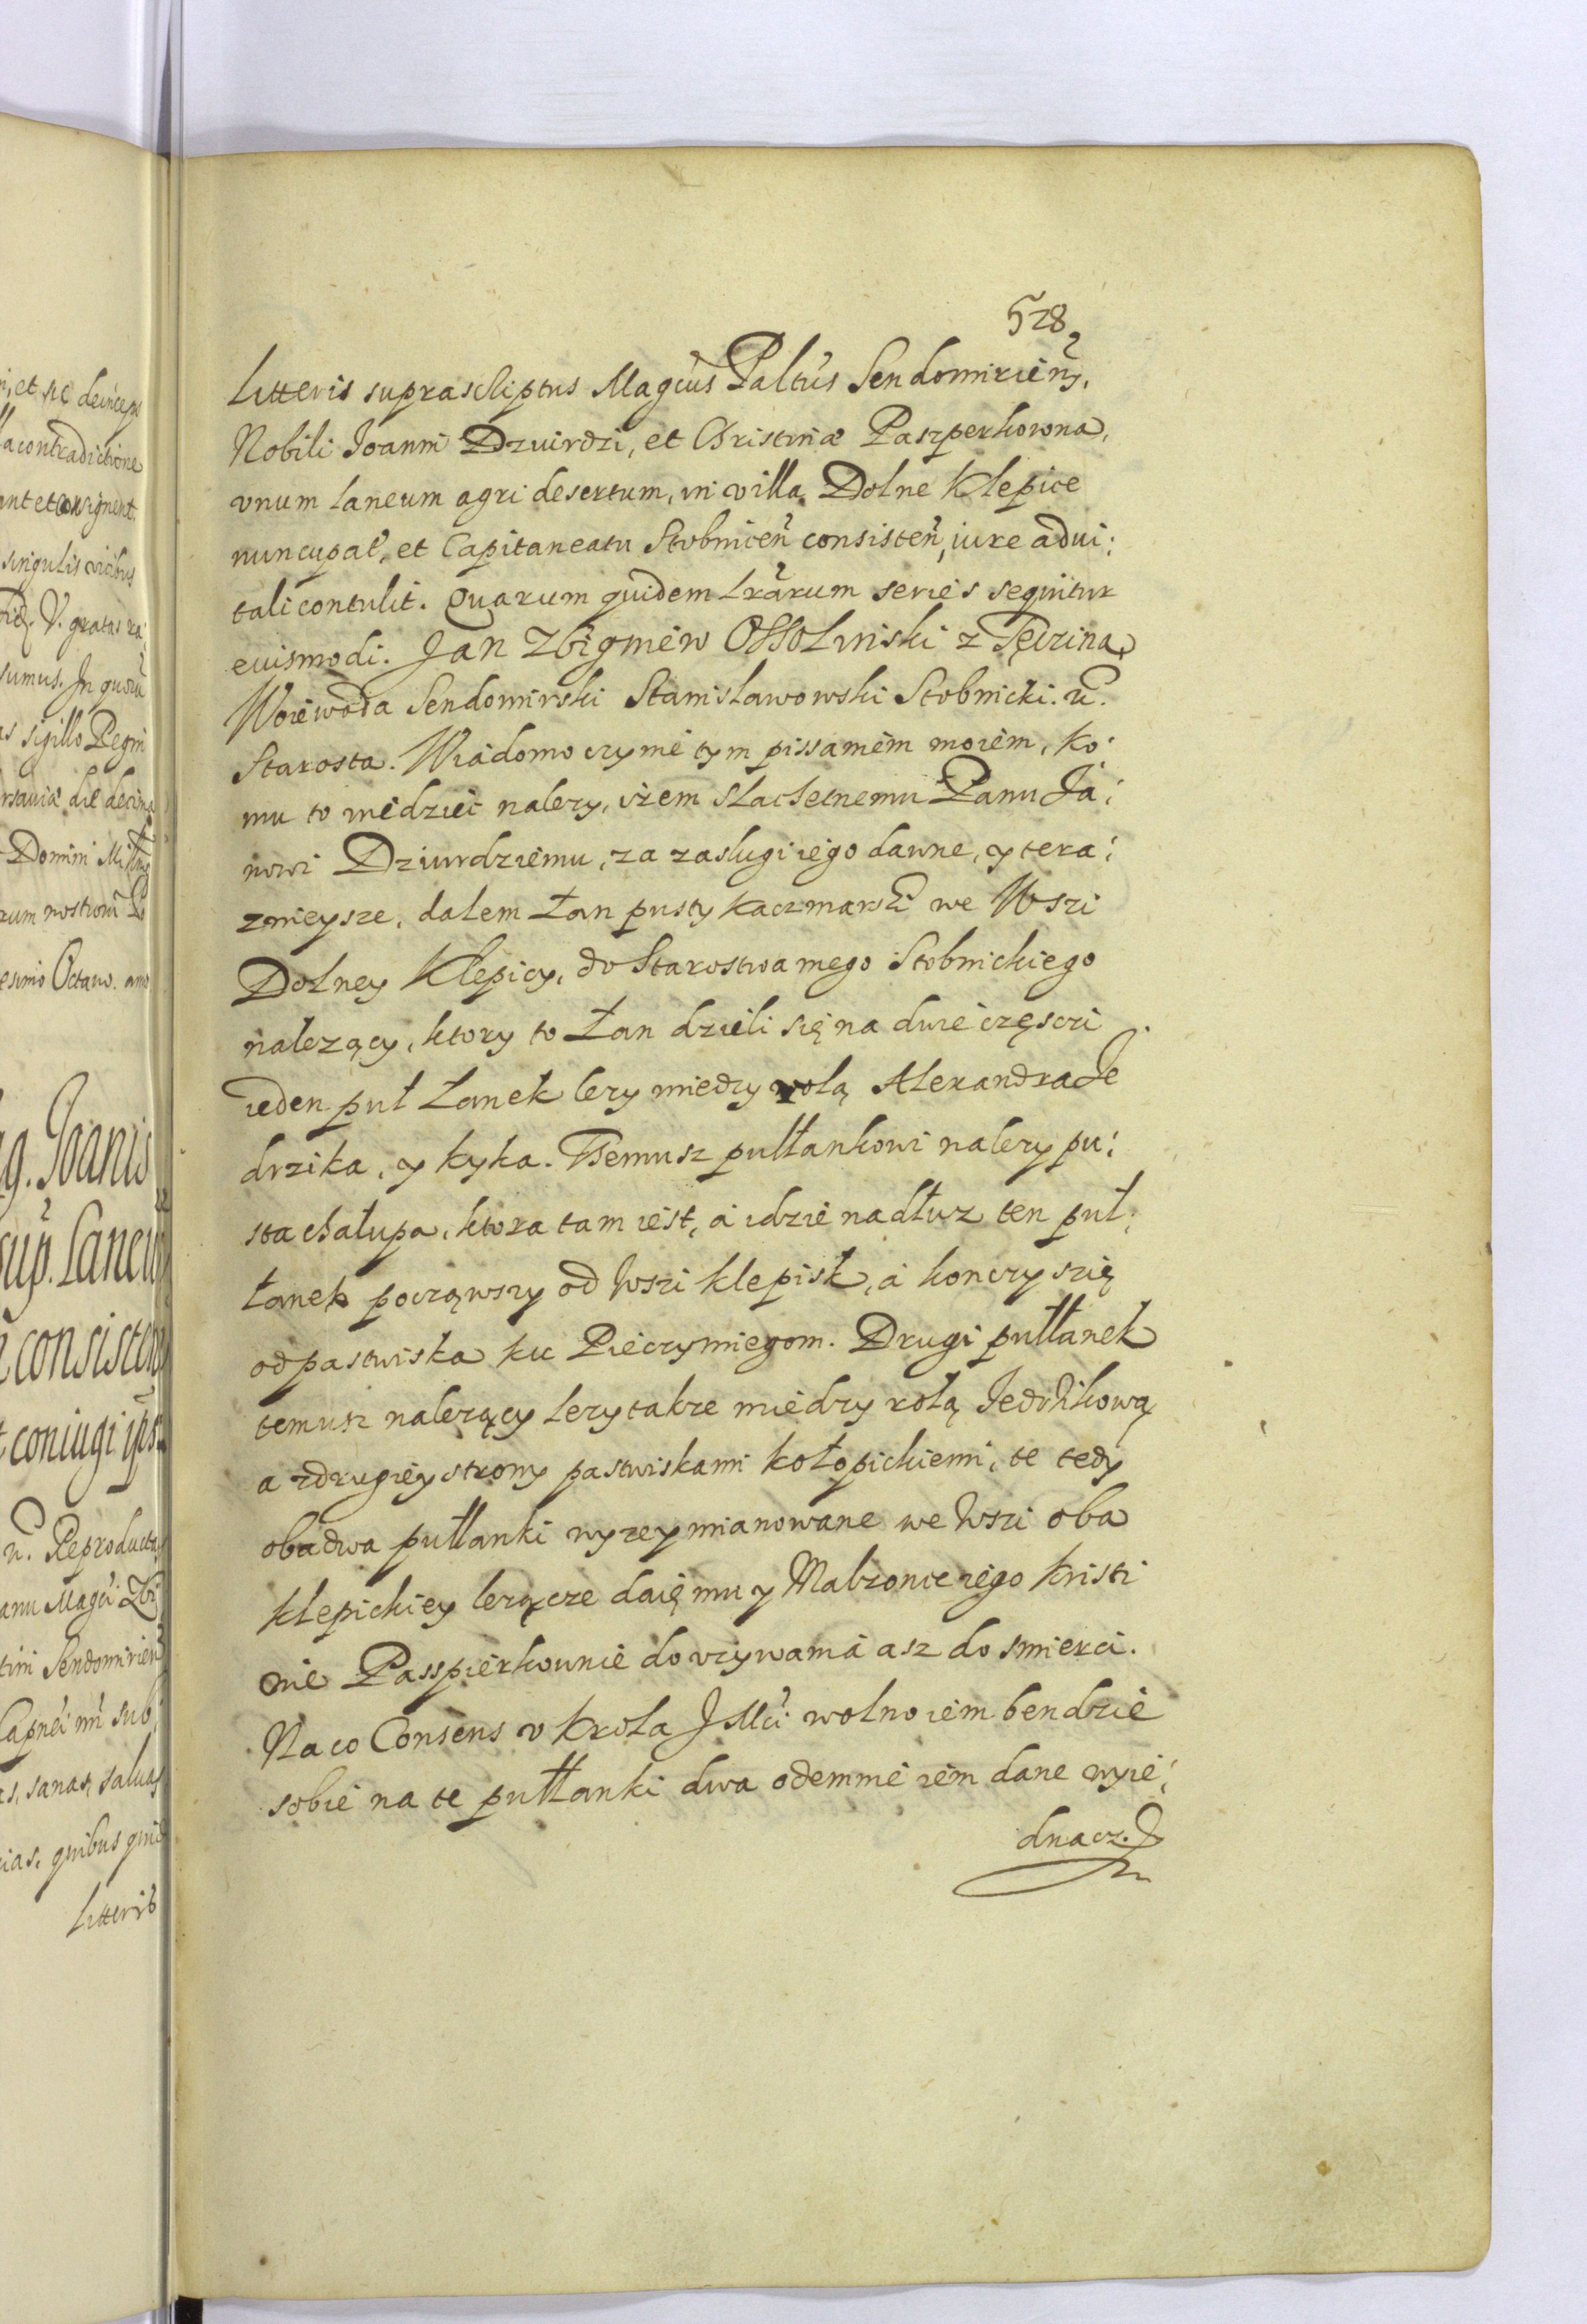 528
Litteris suprascliptus Magcus Paltus Sendomirien,
Nobili Joanni Dzuirdzi, et Christinæ Paszperkowna,
vnum laneum agri desertum, in villa Dolne Klepice
nuncupat, et Capitaneatu Stobnicen consisten, iure adui:
tali contulit. Quarum quidem lrarum series sequitur
euismodi. Jan Zbigniew Ossolinski z Tęczina
Woiewoda Sendomirski Stanisławowski Stobnicki. u.
Starosta. Wiadomo czynie tym pissaniem moiem, ko:
mu to wiedziec nalezy, iżem slachetnemu Panu Ja:
nowi Dziurdziemu, za zaslugi iego dawne, y tera:
znieysze, dalem Łan pusty kaczmarski we Wszi
Dolney Klepicy, do Starostwa mego Stobnickiego
nalezący, ktory to Łan dzieli się na dwie częsczi
ieden puł Łanek lezy miedzy rolą Alexandra Je
drzika, y kyka. Temusz pułłankowi nalezy pu:
sta chałupa, ktora tam iest, a idzie nadłuz ten puł:
łanek począwszy od Wszi klepisk, a konczy szię
od pastwiska ku Pieczyniegom. Drugi pułłanek
temusz nalezący lezy takze miedzy rolą Jedrzikową
a zdrugiey strony pastwiskami kołopickiemi, te tedy
obadwa pułłanki wyzey mianowane we Wszi oba
klepickiey lezącze daię mu y Malzonce iego Kristi
nie Passpierkownie do vzywania asz do smierci.
Na co Consens v Krola JMci wolno iem bendzie
sobie na te pułłanki dwa odemnie iem dane wyie:
dnacz.
n, et sic deinceps
lla contradictione
ant et consignent.
singulis vicibus
fid. V. gratas ra
sumus. In quoru
as sigillo Regni
rsauiæ die decima
Domini Mille
rum nostrorum
esimo Octavo. anno
g. Joanis
sup. Laneu
consisten
t coniugi ips
n. Reproducta
anu Magci Zbi
tini Sendomirien
Capnei nri sub
as, sanas, saluas
cias, quibus quid
Litteris